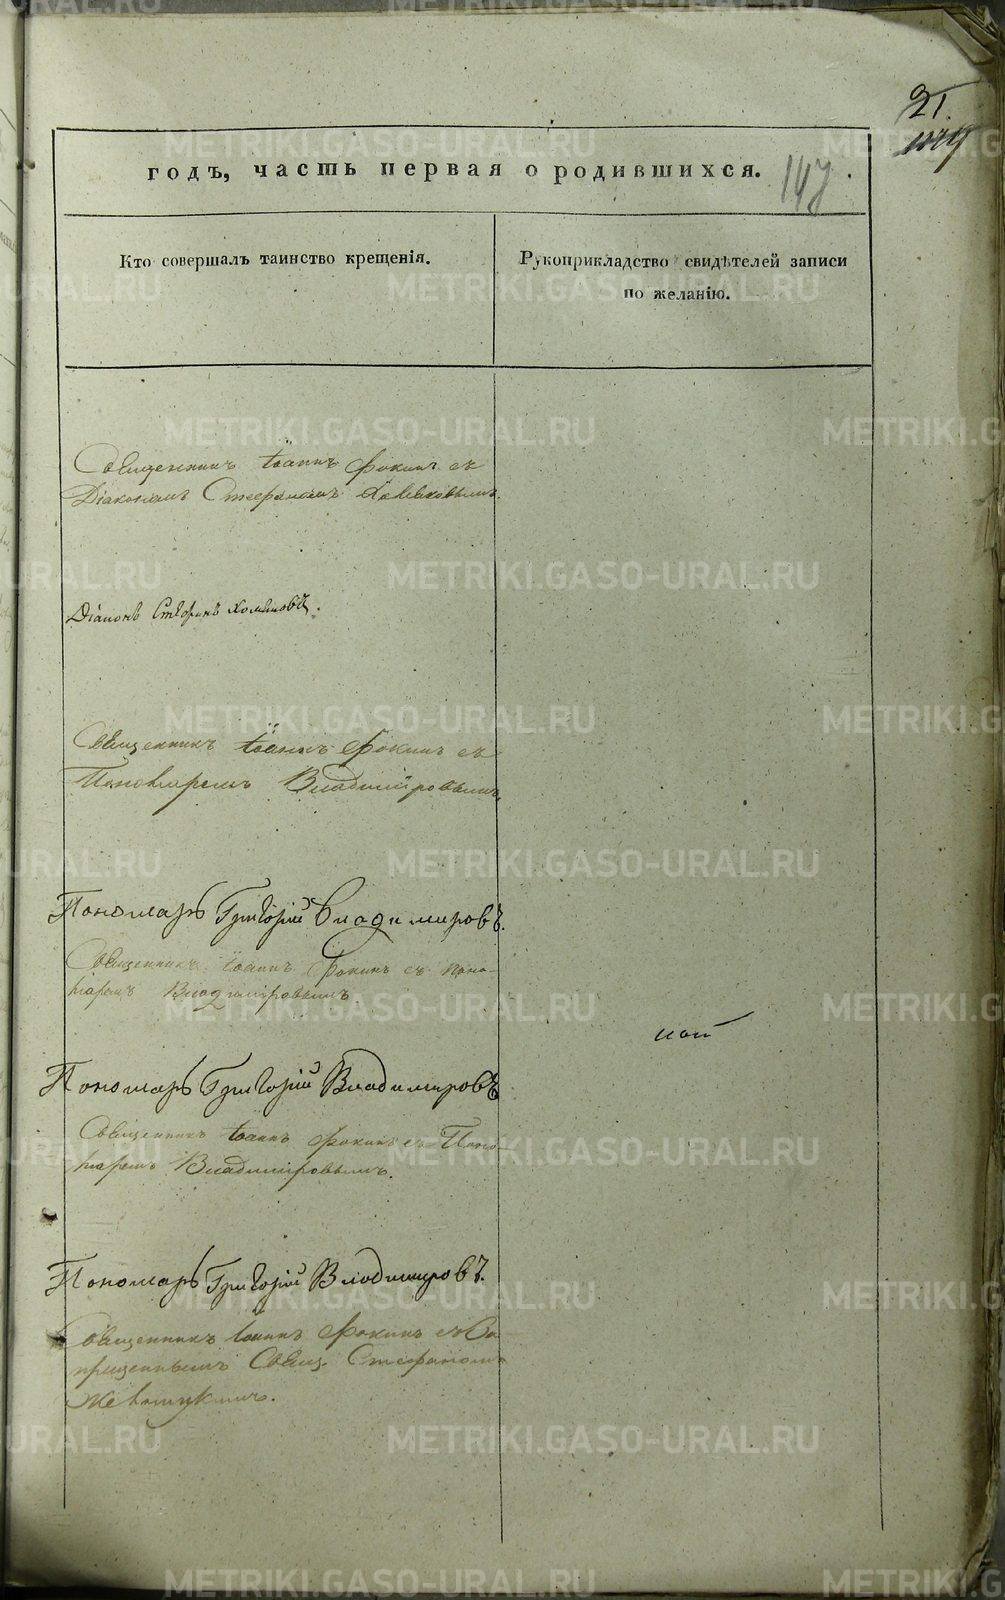 21.
годъ, часть первая о родившихся. 147
Кто совершалъ таинство крещенія.
Рукоприкладство свидѣтелей записи
по желанію.
Священникъ Іоаннъ Фокинъ съ
Діакономъ Стефаномъ
Діаконъ Стефанъ
Священникъ Іоаннъ Фокинъ съ
Пономаремъ Владиміровымъ
Пономарь Григорій Владимировъ.
Священникъ Іоаннъ Фокинъ съ Поно-
маремъ Владиміровымъ.
Пономарь Григорій Владимировъ
Священникъ Іоаннъ Фокинъ съ Поно-
маремъ Владиміровымъ.
Пономарь Григорій Владимировъ.
Священникъ Іоаннъ Фокинъ съ За-
прещеннымъ Свящ. Стефаномъ
METRIKI.GASO-URAL.RU